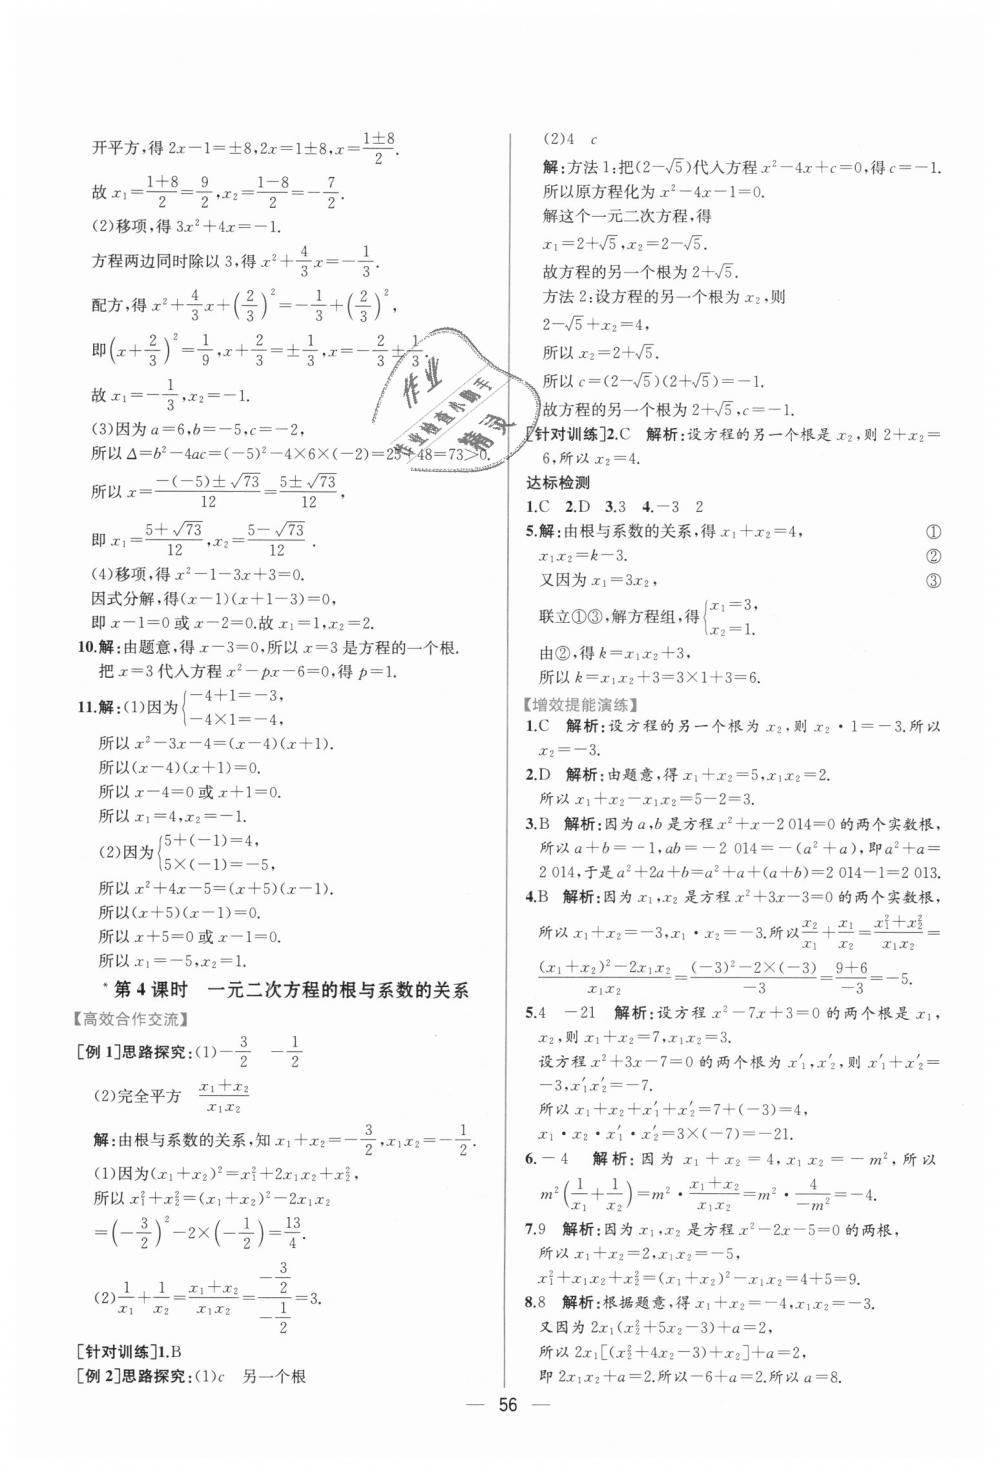 开平方,得 2x-1=±8,2x=1±8,x=\frac{1±8}{2}.
故 x₁=\frac{1+8}{2}=\frac{9}{2},x₂=\frac{1-8}{2}=-\frac{7}{2}.
(2)移项,得 3x²+4x=-1.
方程两边同时除以 3,得 x²+\frac{4}{3}x=-\frac{1}{3}.
配方,得 x²+\frac{4}{3}x+(\frac{2}{3})²=-\frac{1}{3}+(\frac{2}{3})²,
即(x+\frac{2}{3})²=\frac{1}{9},x+\frac{2}{3}=±\frac{1}{3},x=-\frac{2}{3}±\frac{1}{3}.
故 x₁=-\frac{1}{3},x₂=-1.
(3)因为 a=6,b=-5,c=-2,
所以 Δ=b²-4ac=(-5)²-4×6×(-2)=25+48=73>0.
所以 x=\frac{-(-5)±√73}{12}=\frac{5±√73}{12},
即 x₁=\frac{5+√73}{12},x₂=\frac{5-√73}{12}.
(4)移项,得 x²-1-3x+3=0.
因式分解,得(x-1)(x+1-3)=0,
即 x-1=0 或 x-2=0.故 x₁=1,x₂=2.
10.解:由题意,得 x-3=0,所以 x=3 是方程的一个根.
把 x=3 代入方程 x²-px-6=0,得 p=1.
11.解:(1)因为{-4+1=-3,
-4×1=-4,
所以 x²-3x-4=(x-4)(x+1).
所以(x-4)(x+1)=0.
所以 x-4=0 或 x+1=0.
所以 x₁=4,x₂=-1.
(2)因为{5+(-1)=4,
5×(-1)=-5,
所以 x²+4x-5=(x+5)(x-1).
所以(x+5)(x-1)=0.
所以 x+5=0 或 x-1=0.
所以 x₁=-5,x₂=1.
*第 4 课时 一元二次方程的根与系数的关系
【高效合作交流】
[例 1]思路探究:(1)-\frac{3}{2} -\frac{1}{2}
(2)完全平方 \frac{x₁+x₂}{x₁x₂}
解:由根与系数的关系,知 x₁+x₂=-\frac{3}{2},x₁x₂=-\frac{1}{2}.
(1)因为(x₁+x₂)²=x₁²+2x₁x₂+x₂²,
所以 x₁²+x₂²=(x₁+x₂)²-2x₁x₂
=(-\frac{3}{2})²-2×(-\frac{1}{2})=\frac{13}{4}.
(2)\frac{1}{x₁}+\frac{1}{x₂}=\frac{x₁+x₂}{x₁x₂}=\frac{-\frac{3}{2}}{-\frac{1}{2}}=3.
[针对训练]1.B
[例 2]思路探究:(1)c 另一个根
(2)4 c
解:方法 1:把(2-√5)代入方程 x²-4x+c=0,得 c=-1.
所以原方程化为 x²-4x-1=0.
解这个一元二次方程,得
x₁=2+√5,x₂=2-√5.
故方程的另一个根为 2+√5.
方法 2:设方程的另一个根为 x₂,则
2-√5+x₂=4,
所以 x₂=2+√5.
所以 c=(2-√5)(2+√5)=-1.
故方程的另一个根为 2+√5,c=-1.
[针对训练]2.C 解析:设方程的另一个根是 x₂,则 2+x₂=
6,所以 x₂=4.
达标检测
1.C 2.D 3.3 4.-3 2
5.解:由根与系数的关系,得 x₁+x₂=4, ①
x₁x₂=k-3. ②
又因为 x₁=3x₂, ③
联立①③,解方程组,得{x₁=3,
x₂=1.
由②,得 k=x₁x₂+3,
所以 k=x₁x₂+3=3×1+3=6.
【增效提能演练】
1.C 解析:设方程的另一个根为 x₂,则 x₂·1=-3.所以
x₂=-3.
2.D 解析:由题意,得 x₁+x₂=5,x₁x₂=2.
所以 x₁+x₂-x₁x₂=5-2=3.
3.B 解析:因为 a,b 是方程 x²+x-2 014=0 的两个实数根,
所以 a+b=-1,ab=-2 014=-(a²+a),即 a²+a=
2 014,于是 a²+2a+b=a²+a+(a+b)=2 014-1=2 013.
4.B 解析:因为 x₁,x₂ 是方程 x²+3x-3=0 的两个实数根,
所以 x₁+x₂=-3,x₁·x₂=-3.所以\frac{x₂}{x₁}+\frac{x₁}{x₂}=\frac{x₁²+x₂²}{x₁x₂}=
\frac{(x₁+x₂)²-2x₁x₂}{x₁x₂}=\frac{(-3)²-2×(-3)}{-3}=\frac{9+6}{-3}=-5.
5.4 -21 解析:设方程 x²-7x+3=0 的两个根是 x₁,
x₂,则 x₁+x₂=7,x₁x₂=3.
设方程 x²+3x-7=0 的两个根为 x₁′,x₂′,则 x₁′+x₂′=
-3,x₁′x₂′=-7.
所以 x₁+x₂+x₁′+x₂′=7+(-3)=4,
x₁·x₂·x₁′·x₂′=3×(-7)=-21.
6.-4 解析:因为 x₁+x₂=4,x₁x₂=-m²,所以
m²(\frac{1}{x₁}+\frac{1}{x₂})=m²·\frac{x₁+x₂}{x₁x₂}=m²·\frac{4}{-m²}=-4.
7.9 解析:因为 x₁,x₂ 是方程 x²-2x-5=0 的两根,
所以 x₁+x₂=2,x₁x₂=-5,
x₁²+x₁x₂+x₂²=(x₁+x₂)²-x₁x₂=4+5=9.
8.8 解析:根据题意,得 x₁+x₂=-4,x₁x₂=-3.
又因为 2x₁(x₂²+5x₂-3)+a=2,
所以 2x₁[(x₂²+4x₂-3)+x₂]+a=2,
即 2x₁x₂+a=2.所以-6+a=2.所以 a=8.
— 56 —
作业
作业检查小助手
精灵